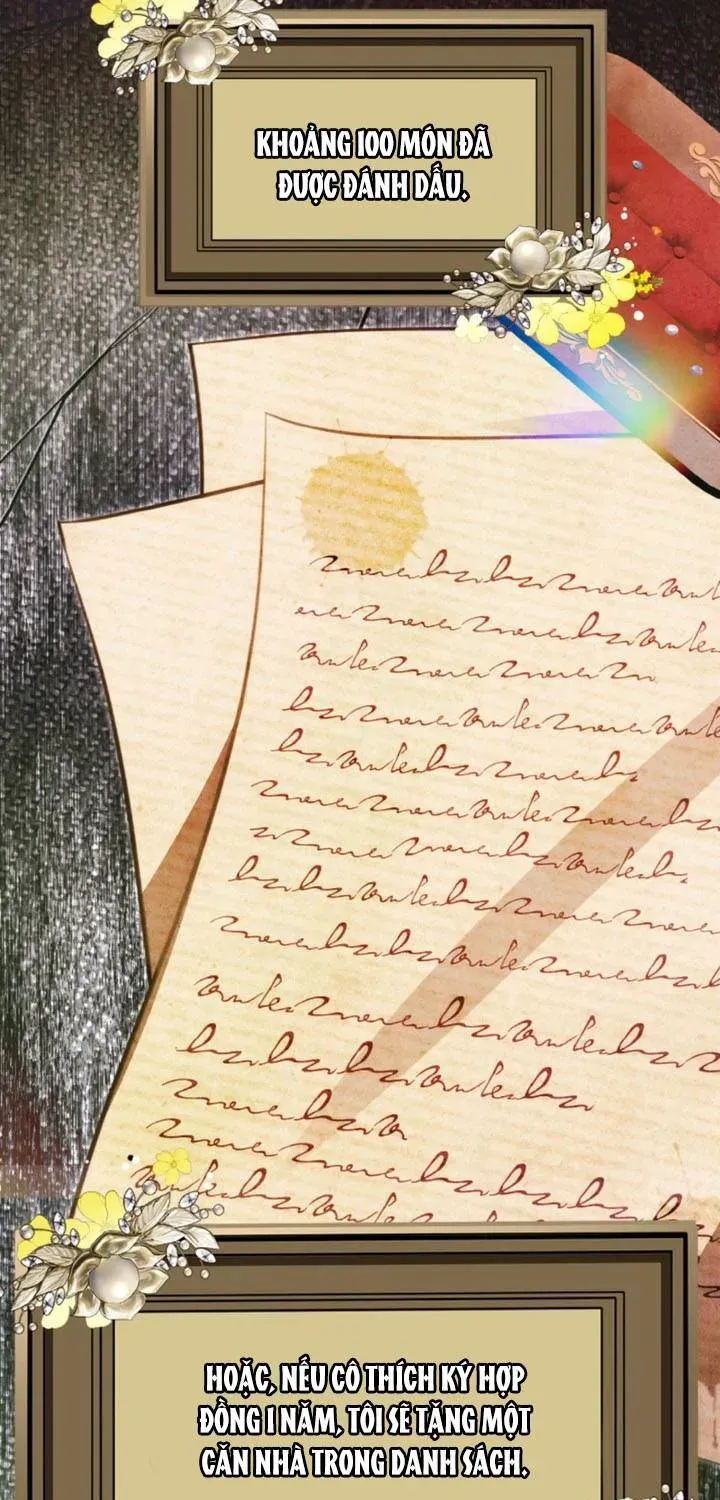 KHOẢNG 100 MÓN ĐÃ
ĐƯỢC ĐÁNH DẤU.
HOẶC, NẾU CÔ THÍCH KÝ HỢP
ĐỒNG 1 NĂM, TÔI SẼ TẶNG MỘT
CĂN NHÀ TRONG DANH SÁCH.